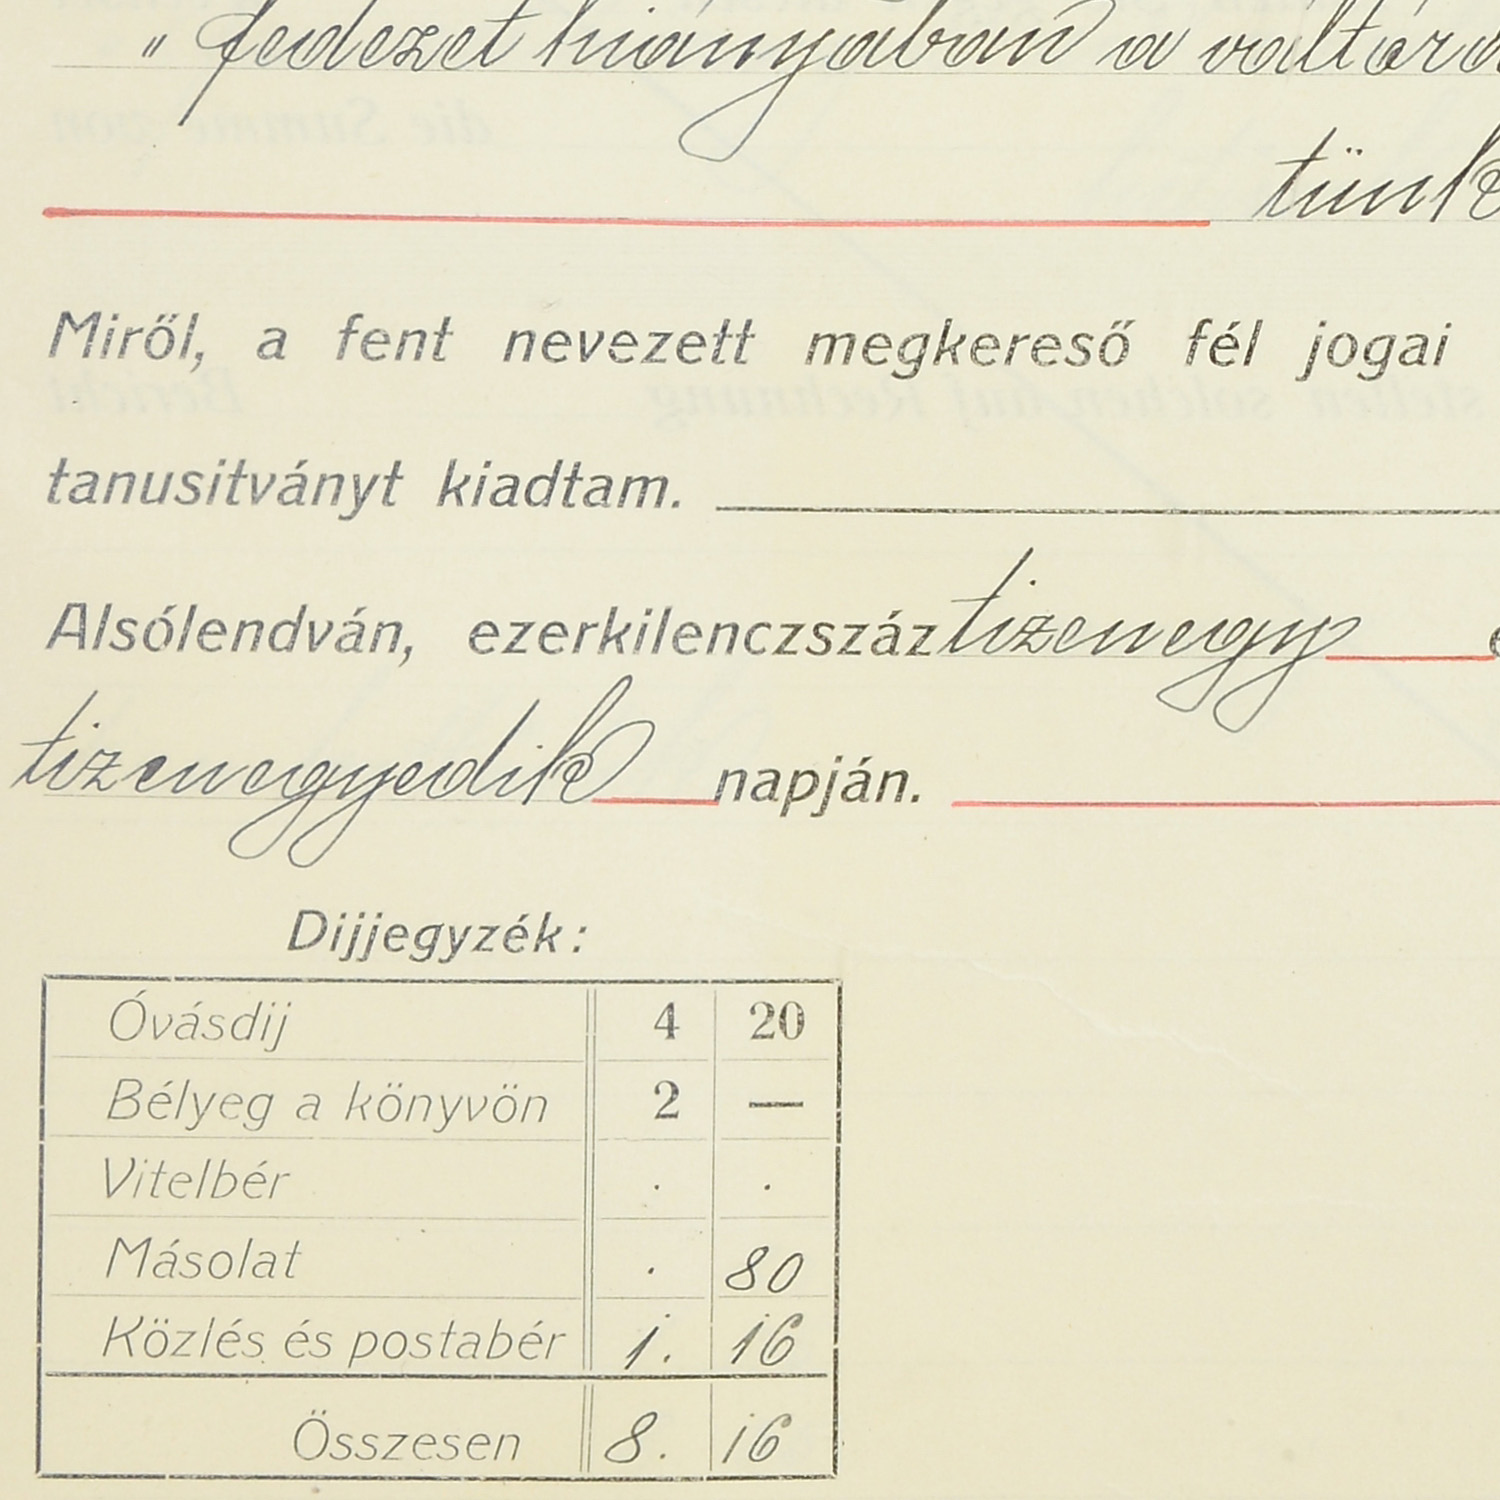 " fedezet hiányában a váltóra
tünk
Miről, a fent nevezett megkereső fél jogai
tanusitványt kiadtam.
Alsólendván, ezerkilenczszáz tizenegy
tizenegyedik napján.
Dijjegyzék:
Óvásdij 4 20
Bélyeg a könyvön 2 —
Vitelbér . .
Másolat . 80
Közlés és postabér 1. 16
Összesen 8. 16